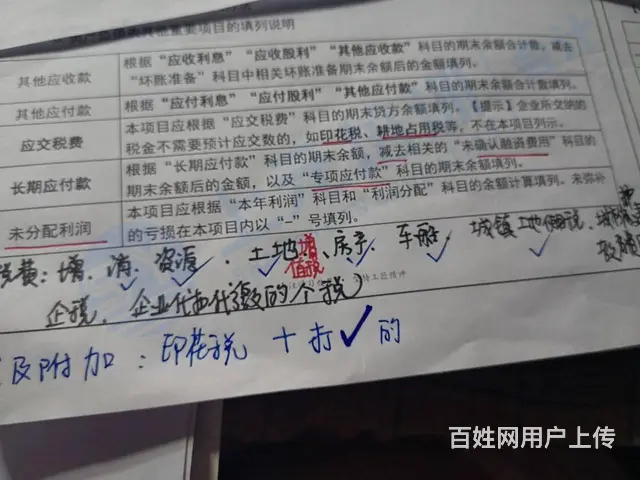 其他重要项目的填列说明
其他应收款
根据“应收利息”“应收股利”“其他应收款”科目的期末余额合计数，减去
“坏账准备”科目中相关坏账准备期末余额后的金额填列。
其他应付款
根据“应付利息”“应付股利”“其他应付款”科目的期末余额合计数填列。
应交税费
本项目应根据“应交税费”科目的期末贷方余额填列。【提示】企业所交纳的
税金不需要预计应交数的，如印花税、耕地占用税等，不在本项目列示。
长期应付款
根据“长期应付款”科目的期末余额，减去相关的“未确认融资费用”科目的
期末余额后的金额，以及“专项应付款”科目的期末余额填列。
未分配利润
本项目应根据“本年利润”科目和“利润分配”科目的余额计算填列。未弥补
的亏损在本项目内以“-”号填列。
税费：增、消、资源、土地增值税、房产、车船 城镇土地使用税、城
企税、企业代扣代缴的个税）
及附加：印花税＋打✓的
百姓网用户上传